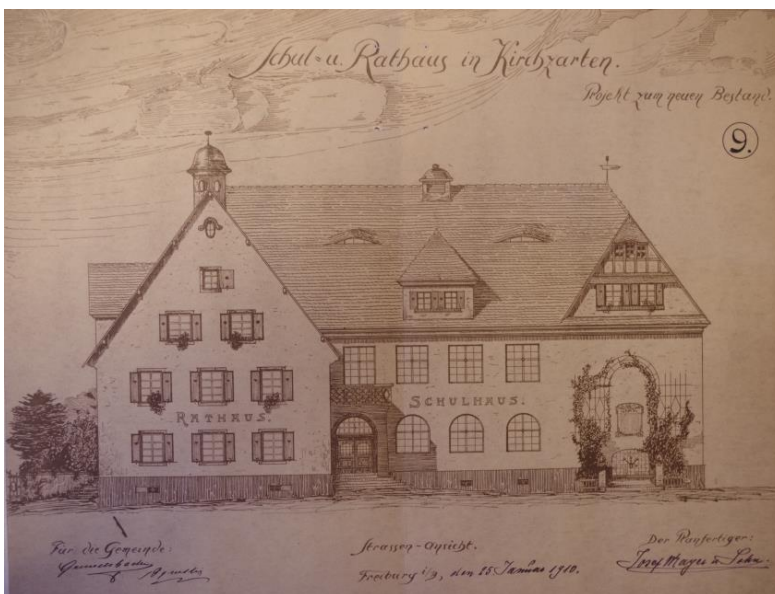 Schul- u. Rathaus in Kirchzarten.
Projekt zum neuen Bestand.
9.
RATHAUS.
SCHULHAUS.
Für die Gemeinde:
Strassen-Ansicht.
Freiburg i/B, den 25. Januar 1910.
Der Planfertiger:
Josef Mayer u. Sohn.